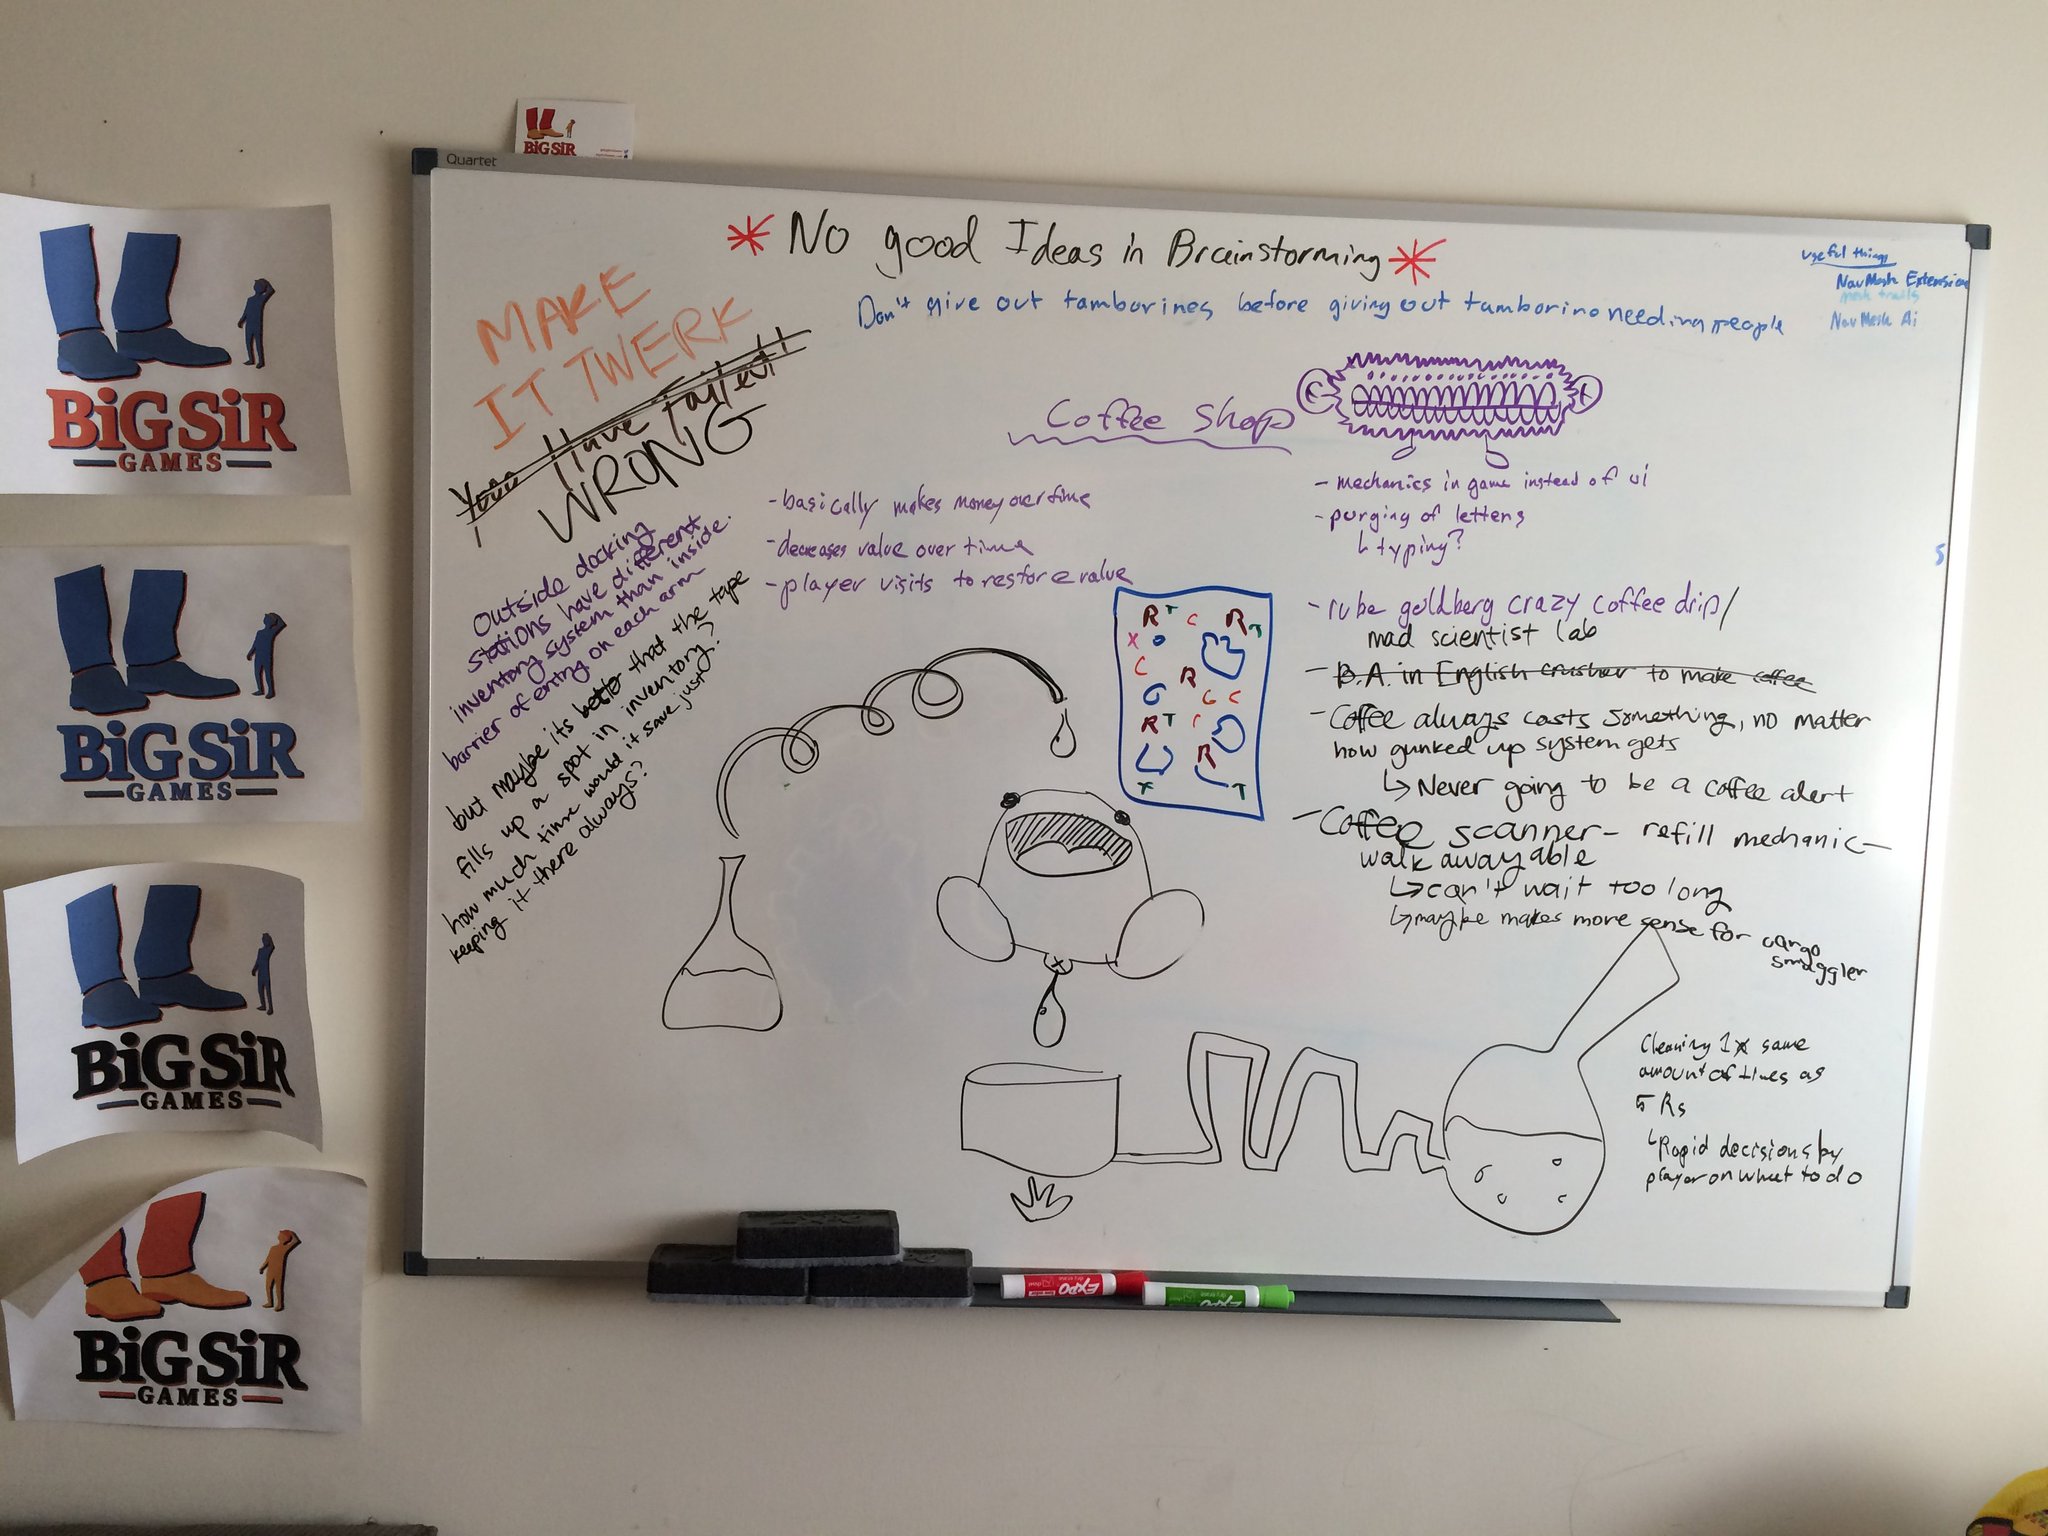 BiG SiR
Quartet
BiG SiR
GAMES
BiG SiR
GAMES
BiG SiR
GAMES
BiG SiR
GAMES
* No good Ideas in Brainstorming *
Don't give out tamborines before giving out tamborine needing people
useful things
NavMesh Extension
mesh trails
NavMesh Ai
MAKE
IT TWERK
You Have failed!
WRONG
Outside docking
stations have different
inventory system than inside.
barrier of entry on each arm
but maybe its better that the tape
fills up a spot in inventory?
how much time would it save just
keeping it there always?
Coffee Shop
- basically makes money over time
- decreases value over time
- player visits to restore value
- mechanics in game instead of ui
- purging of letters
↳ typing?
- rube goldberg crazy coffee drip/
mad scientist lab
- B.A. in English crusher to make coffee
- Coffee always costs something, no matter
how gunked up system gets
↳ Never going to be a coffee alert
- Coffee scanner - refill mechanic -
walk awayable
↳ can't wait too long
↳ maybe makes more sense for cargo
smuggler
R T C R T
X
C R
C C
R T C
R
T T
5
Cleaning 1x same
amount of times as
5 Rs
↳ Rapid decisions by
player on what to do
EXPO
EXPO